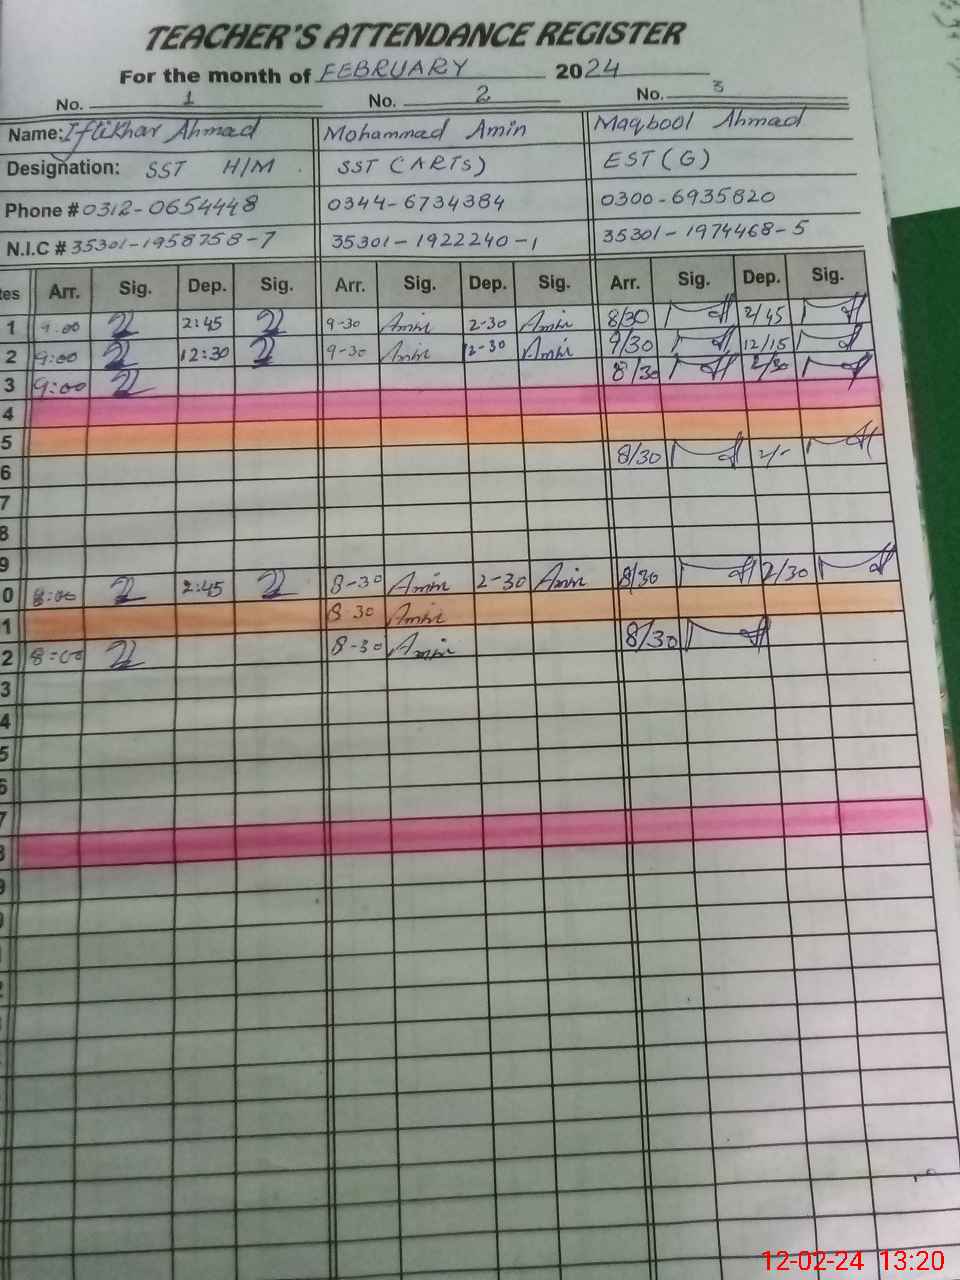 TEACHER'S ATTENDANCE REGISTER
For the month of FEBRUARY 2024
No. 1 No. 2 No. 3
Name: Iftikhar Ahmad Mohammad Amin Maqbool Ahmad
Designation: SST H/M SST (ARTs) EST (G)
Phone # 0312-0654448 0344-6734384 0300-6935820
N.I.C # 35301-1958758-7 35301-1922240-1 35301-1974468-5
tes Arr. Sig. Dep. Sig. Arr. Sig. Dep. Sig. Arr. Sig. Dep. Sig.
1 9:00 2:45 9-30 Amin 2-30 Amin 8/30 2/45
2 9:00 12:30 9-30 Amin 12-30 Amin 9/30 12/15
3 9:00 8/30 2/30
4
5
6 8/30 2/-
7
8
9
0 8:00 2:45 8-30 Amin 2-30 Amin 8/30 2/30
1 8-30 Amin
2 8:00 8-30 Amin 8/30
3
4
5
6
7
8
9
0
1
2
3
12-02-24 13:20